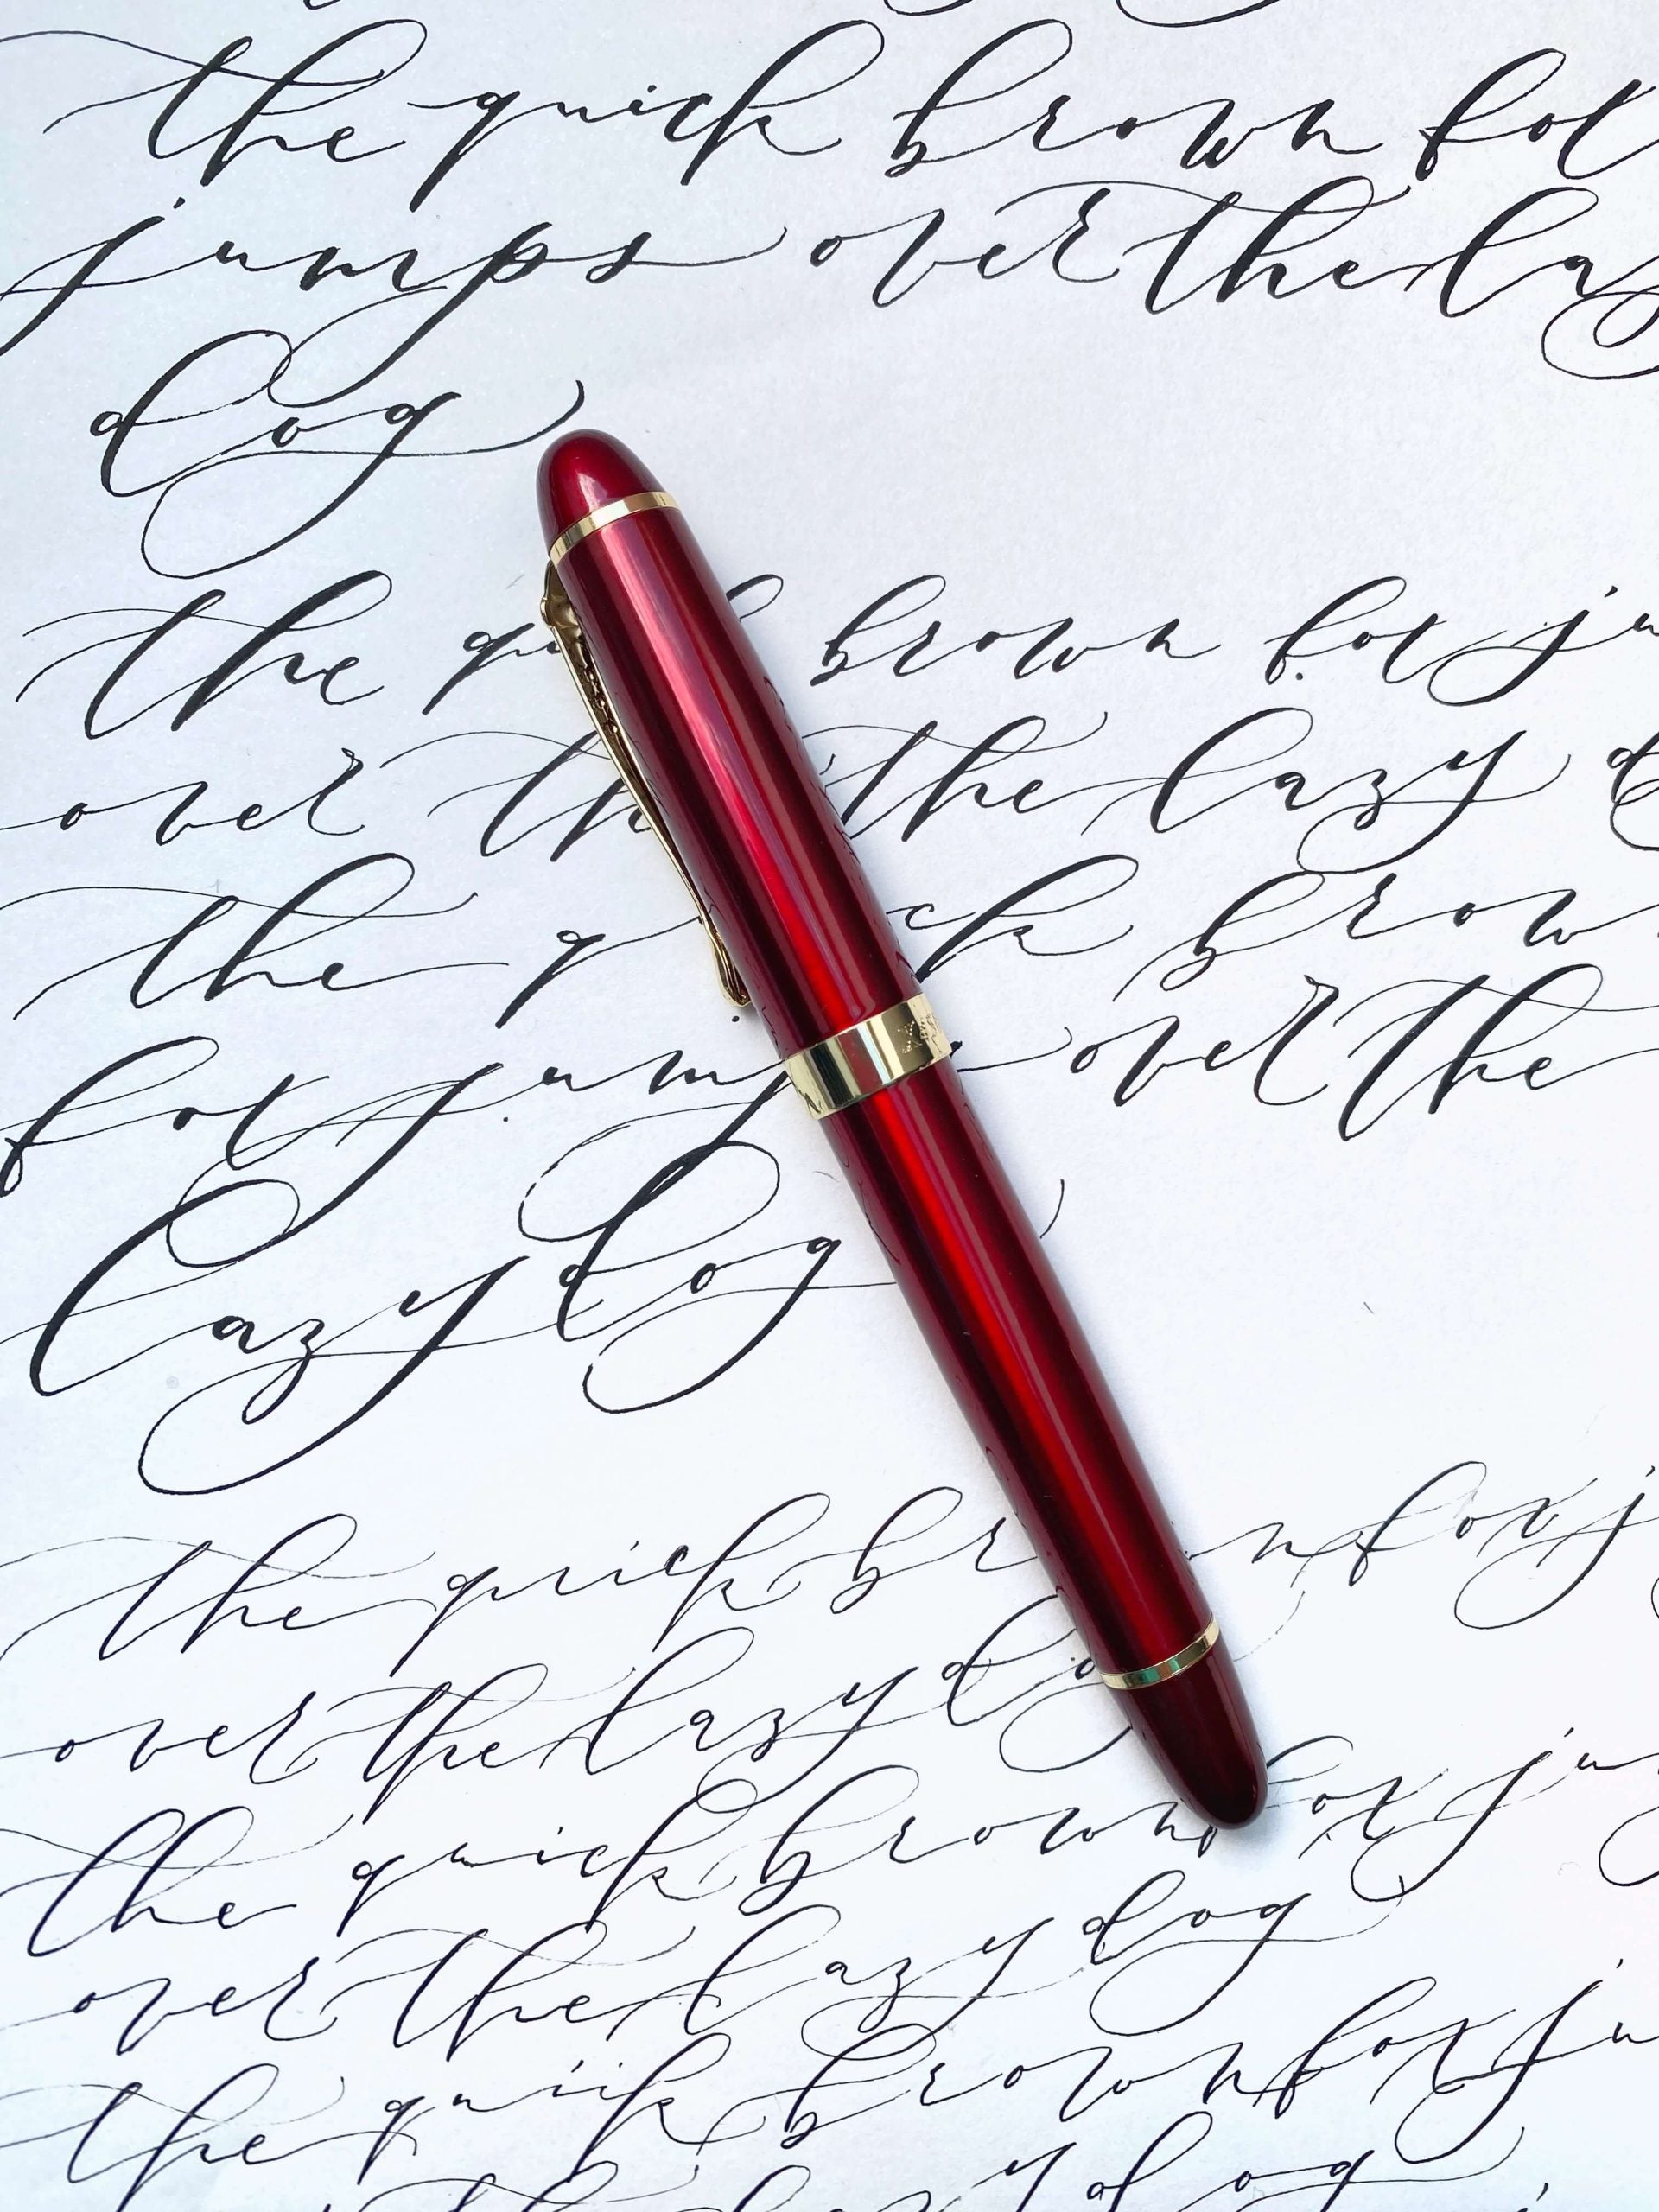 the quick brown fox
jumps over the la
dog
the qu brown fox ju
over th the lazy d
the q ck brow
fox jum over the
lazy dog
the quick br n fox j
over the lazy do
the quick brown fox ju
over the lazy dog
the quick brown fox ju
the lazy dog